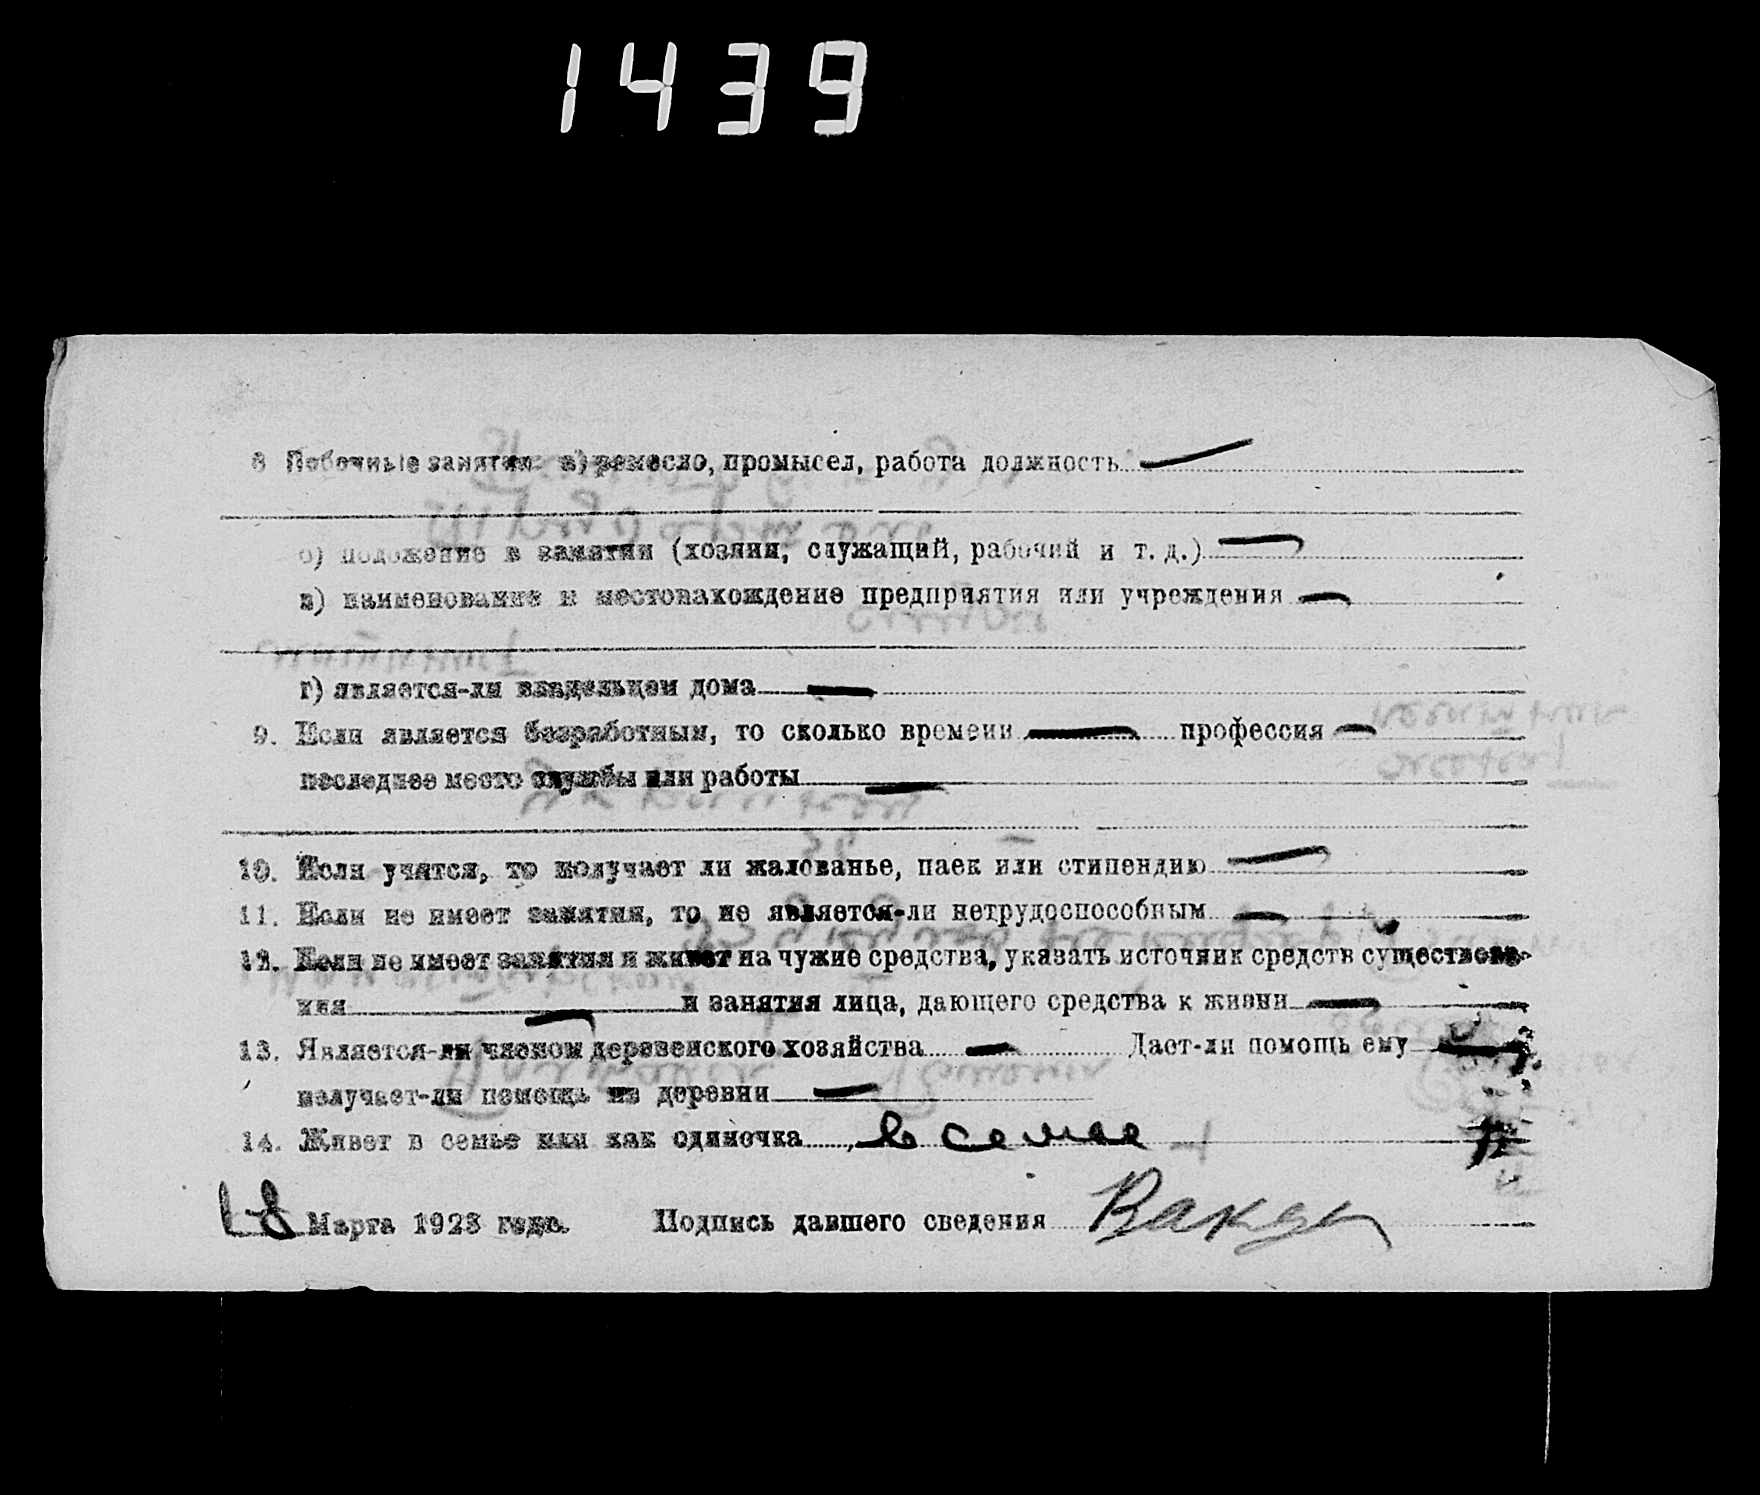 1439
8 Побочные занятия: а) ремесло, промысел, работа должность —
б) положение в занятии (хозяин, служащий, рабочий и т. д.) —
в) наименование и местонахождение предприятия или учреждения —
г) является-ли владельцем дома —
9. Если является безработным, то сколько времени — профессия —
последнее место службы или работы —
10. Если учится, то получает ли жалованье, паек или стипендию —
11. Если не имеет занятия, то не является-ли нетрудоспособным —
12. Если не имеет занятия и живет на чужие средства, указать источник средств существова-
ния — и занятия лица, дающего средства к жизни —
13. Является-ли членом деревенского хозяйства — Дает-ли помощь ему —
получает-ли помощь из деревни —
14. Живет в семье или как одиночка в семье
18 Марта 1923 года. Подпись давшего сведения